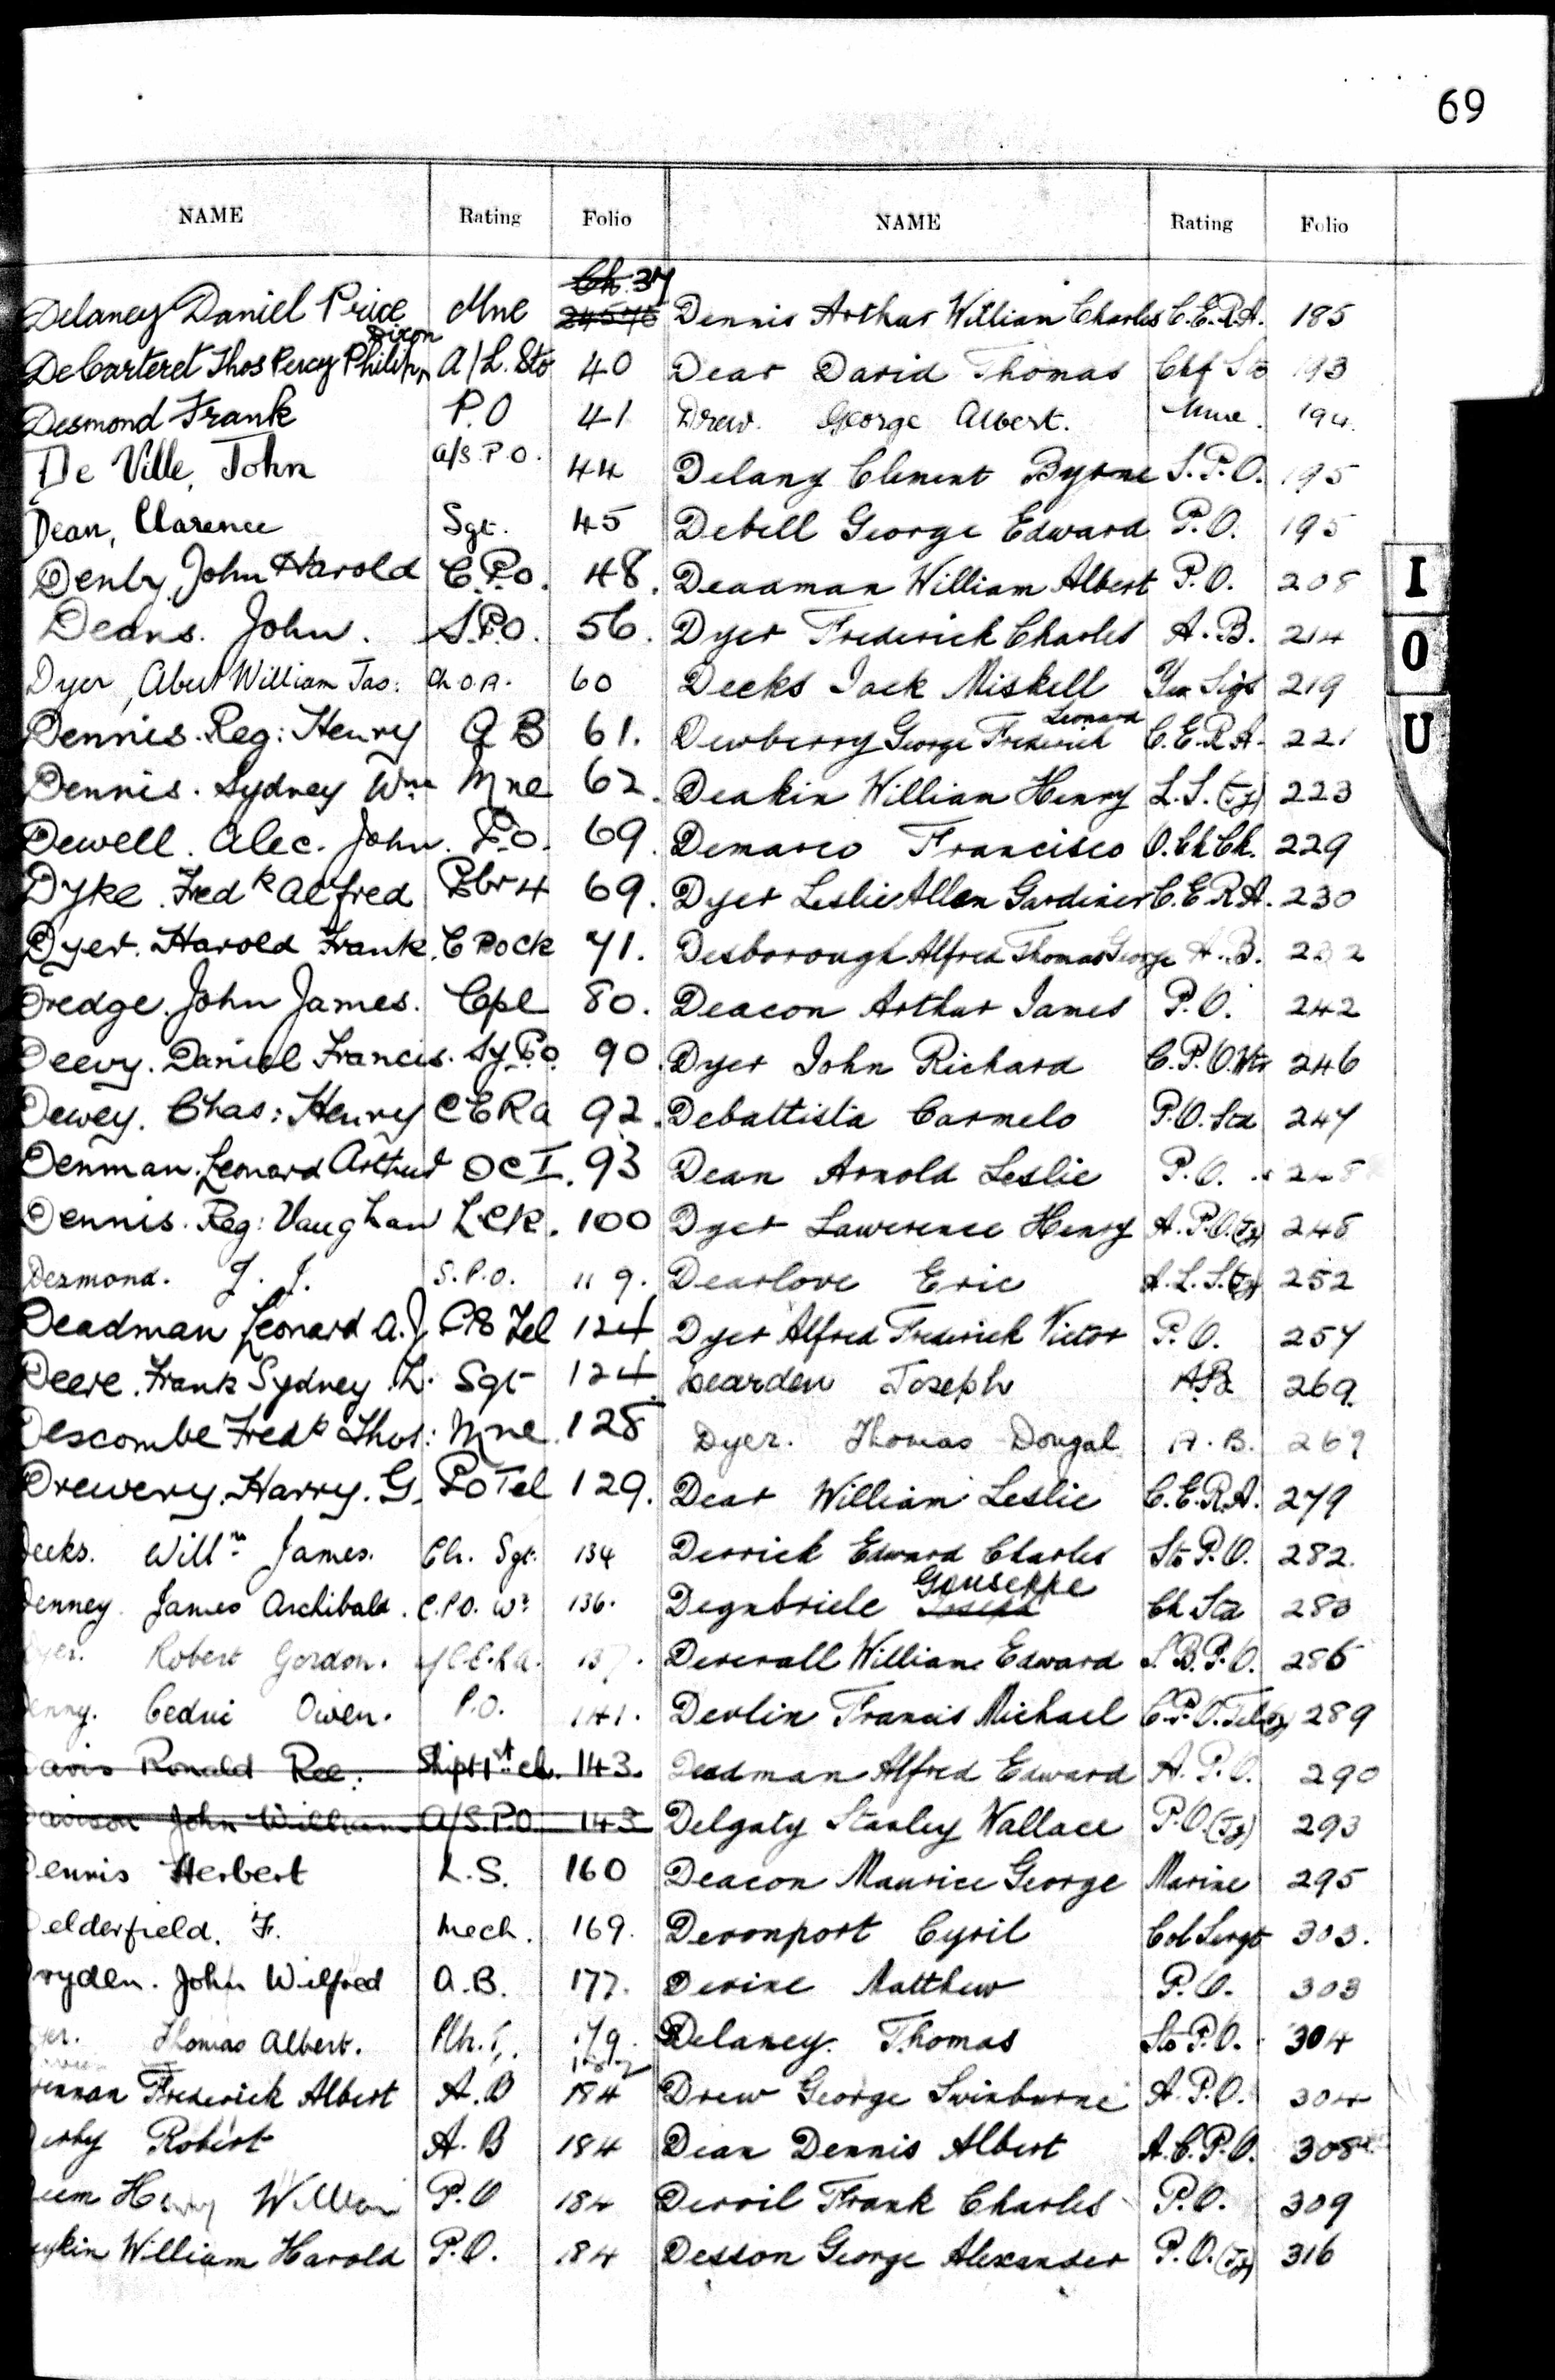 69
NAME Rating Folio
Ch. 37
Delaney Daniel Price Mne 24576
Dixon
De Carteret Thos Percy Philip A/L. Sto 40
Desmond Frank P.O 41
De Ville, John a/S.P.O. 44
Dean, Clarence Sgt. 45
Denby John Harold C.P.O. 48.
Deans. John. S.P.O. 56.
Dyer, Abert William Jas: Ch O.A. 60
Dennis. Reg: Henry A B 61.
Dennis. Sydney Wm Mne 62.
Dewell. Alec. John. P.O. 69.
Dyke. Fredk Alfred Pbr 4 69.
Dyer. Harold Frank. C PO Ck 71.
Dredge. John James. Cpl 80.
Deevy. Daniel Francis. Sy P.O. 90.
Dewey. Chas: Henry C E R A 92.
Denman. Leonard Arthur OC I. 93
Dennis. Reg: Vaughan L Ck. 100
Dezmond. J. J. S.P.O. 119.
Deadman Leonard A.J. Tel 124
Deere. Frank Sydney. L. Sgt 124.
Descombe Fredk Thos: Mne. 128
Drewery. Harry. G. PO Tel 129.
Deeks. Willm James. Ch. Sgt. 134
Denney. James Archibald. C.P.O. Wr 136.
Dyer. Robert Gordon. 137.
Denny. Cedric Owen. P.O. 141.
Davis Ronald Shipt 1st cl. 143.
Davison John William A/S.P.O. 143
Dennis Herbert L.S. 160
Delderfield. F. Mech. 169.
Dryden. John Wilfred A.B. 177.
Dyer. Thomas Albert. 179.
Frederick Albert A.B 184
Derby Robert A.B 184
Henry William P.O 184
William Harold P.O. 184
NAME Rating Folio
Dennis Arthur William Charles C.E.R.A. 185
Dear David Thomas Chf Sto 193
Drew. George Albert. Mne. 194.
Delany Clement Byrne S.P.O. 195
Debell George Edward P.O. 195
Deadman William Albert P.O. 208
Dyer Frederick Charles A.B. 214
Deeks Jack Miskell Yeo Sigs 219
Leonard
Dewberry George Frederick C.E.R.A. 221
Deakin William Henry L.S. (Ty) 223
Demarco Francisco O.Ch Ck. 229
Dyer Leslie Allen Gardiner C.E.R.A. 230
Desborough Alfred Thomas George A.B. 232
Deacon Arthur James P.O. 242
Dyer John Richard C.P.O. Wtr 246
Debattista Carmelo P.O. Std 247
Dean Arnold Leslie P.O. 248
Dyer Lawerence Henry A.P.O.(Ty) 248
Dearlove Eric A.L.S.(Ty) 252
Dyer Alfred Frederick Victor P.O. 257
Dearden Joseph AB 269.
Dyer. Thomas Dougal A.B. 269
Dear William Leslie C.E.R.A. 279
Derrick Edward Charles Sto P.O. 282.
Giuseppe
Degabriele Joseph Ch Std 283
Deverall William Edward S.B.P.O. 286
Devlin Francis Michael C.P.O. Tel(Ty) 289
Deadman Alfred Edward A.P.O. 290
Delgaty Stanley Wallace P.O.(Ty) 293
Deacon Maurice George Marine 295
Devonport Cyril Col Sergt 303.
Devine Matthew P.O. 303
Delaney. Thomas Sto P.O. 304
Drew George Swinburne A.P.O. 304
Dean Dennis Albert A.C.P.O. 308
Dervil Frank Charles P.O. 309
Desson George Alexander P.O.(Ty) 316
I
O
U